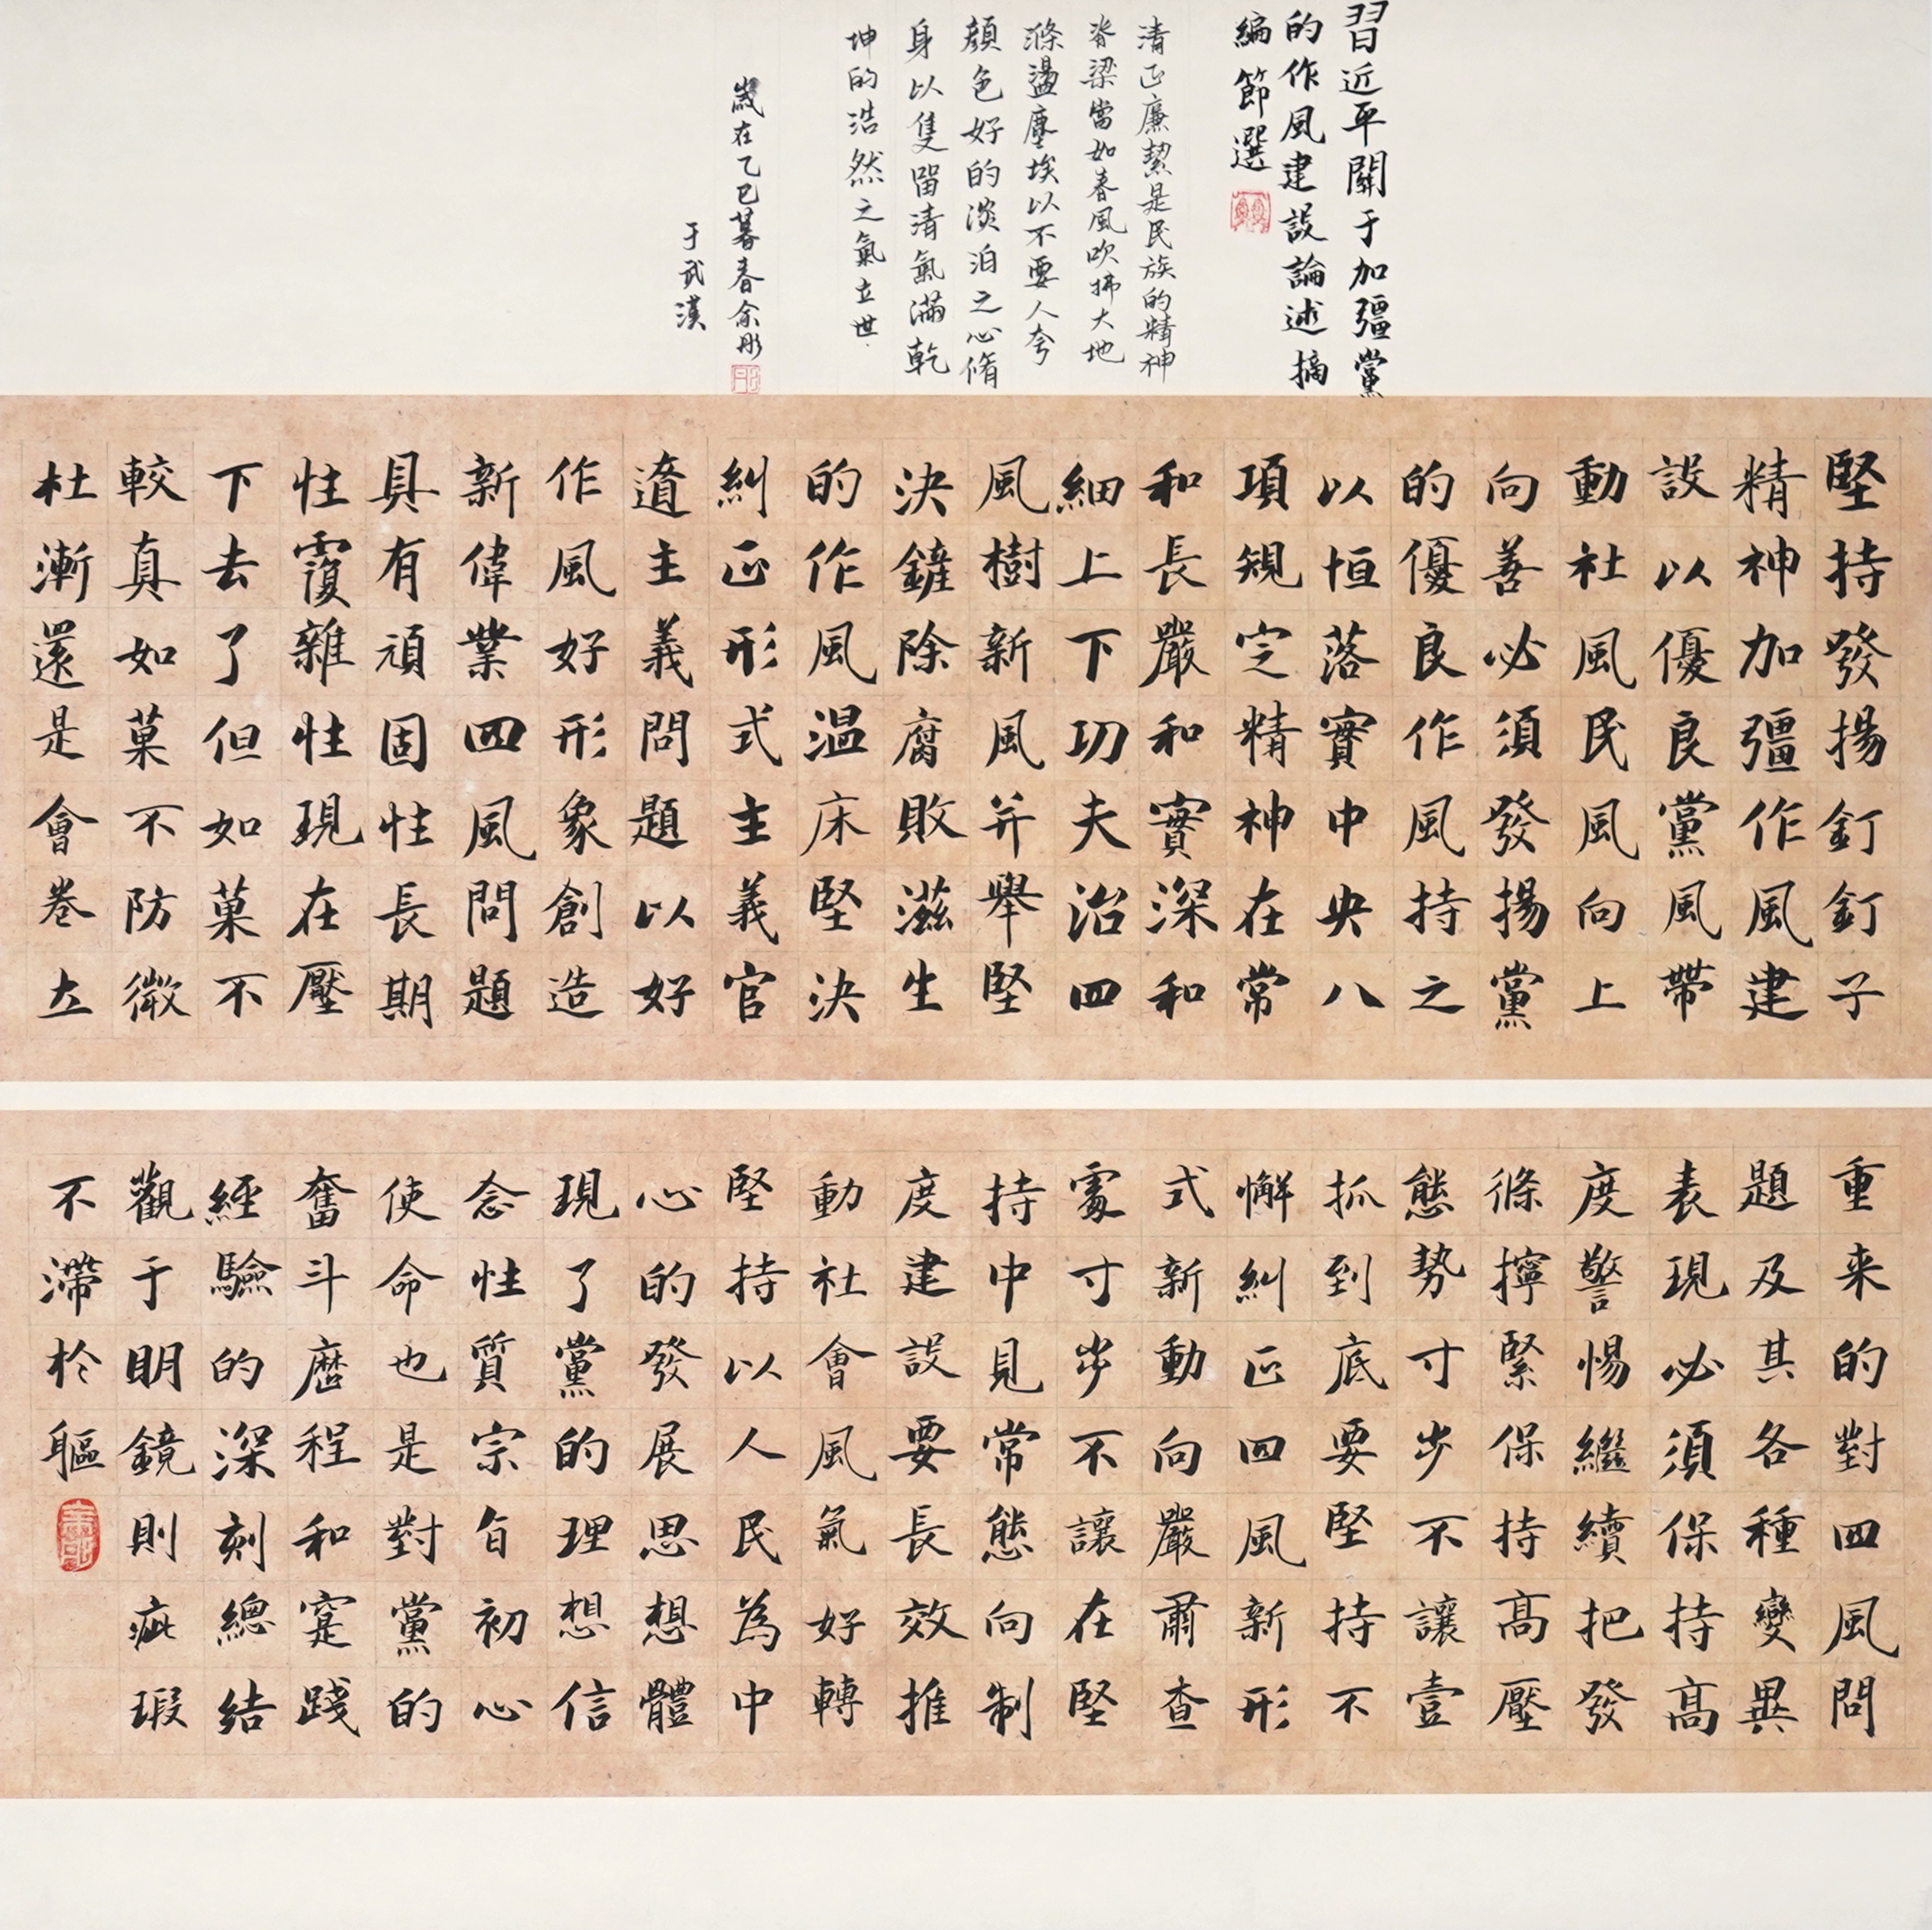 習近平關于加彊黨
的作風建設論述摘
編節選
清正廉潔是民族的精神
脊梁當如春風吹拂大地
滌盪塵埃以不要人夸
顏色好的淡泊之心脩
身以隻留清氣滿乾
坤的浩然之氣立世
歲在乙巳暮春俞彤
于武漢
堅持發揚釘釘子
精神加彊作風建
設以優良黨風帶
動社風民風向上
向善必須發揚黨
的優良作風持之
以恒落實中央八
項規定精神在常
和長嚴和實深和
細上下功夫治四
風樹新風并舉堅
決鏟除腐敗滋生
的作風温床堅決
糾正形式主義官
遼主義問題以好
作風好形象創造
新偉業四風問題
具有頑固性長期
性覆雜性現在壓
下去了但如菓不
較真如菓不防微
杜漸還是會卷土
重来的對四風問
題及其各種變異
表現必須保持高
度警惕繼續把發
條擰緊保持高壓
態勢寸步不讓壹
抓到底要堅持不
懈糾正四風新形
式新動向嚴肅查
處寸步不讓在堅
持中見常態向制
度建設要長效推
動社會風氣好轉
堅持以人民為中
心的發展思想體
現了黨的理想信
念性質宗旨初心
使命也是對黨的
奮斗歷程和寔踐
經驗的深刻總結
觀于明鏡則疵瑕
不滯於軀